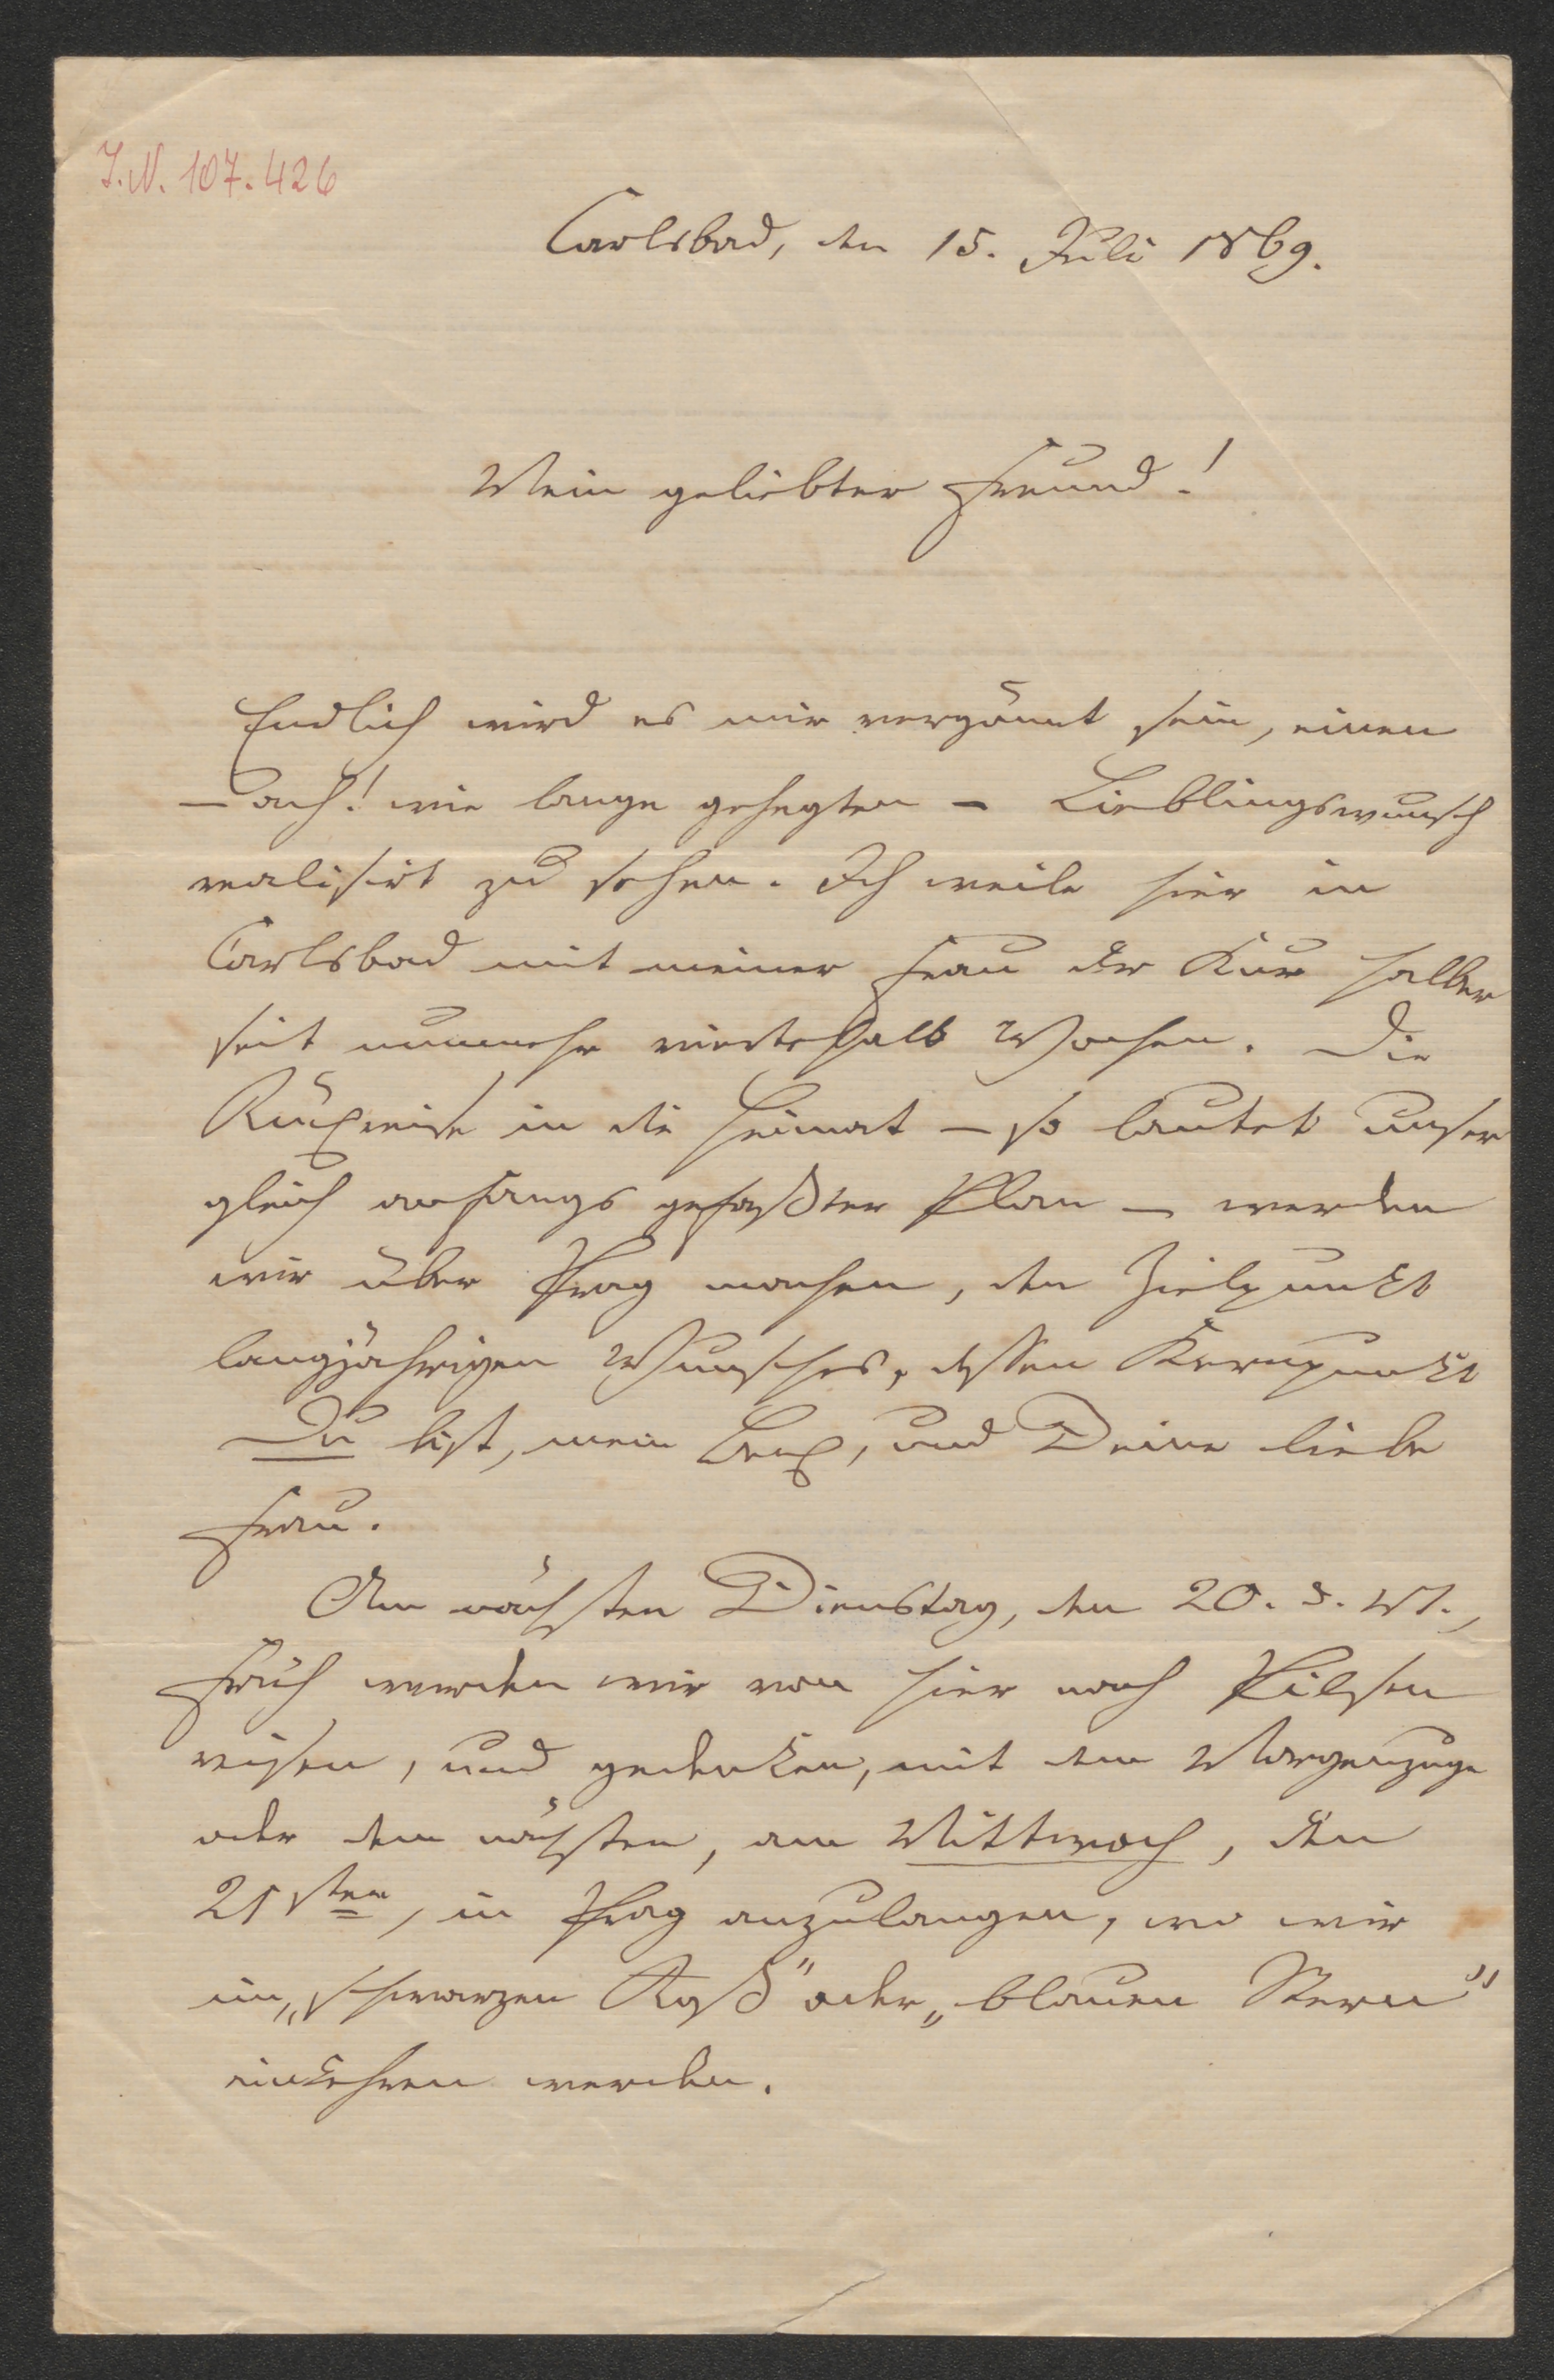 J.N. 107.426
Carlsbad, den 15. Juli 1869.
Mein geliebter Freund!
Endlich wird es mir vergönnt sein, einen
– ach! wie lange gehegten – Lieblingswunsch
realisirt zu sehen. Ich weile hier in
Carlsbad mit meiner Frau der Kur halber
seit nunmehr viertehalb Wochen. Die
Rückreise in die Heimat – so lautet unser
gleich anfangs gefaßter Plan – werden
wir über Prag machen, den Zielpunkt
langjährigen Wunsches, dessen Kernpunkt
Du bist, mein und Deine liebe
Frau.
Am nächsten Dienstag, den 20. d. M.,
früh werden wir von hier nach Pilsen
reisen, und gedenken, mit dem Morgenzuge
oder dem nächsten, am Mittwoch, den
21sten, in Prag anzulangen, wo wir
im „schwarzen Roß" oder „blauen Stern"
einkehren werden.